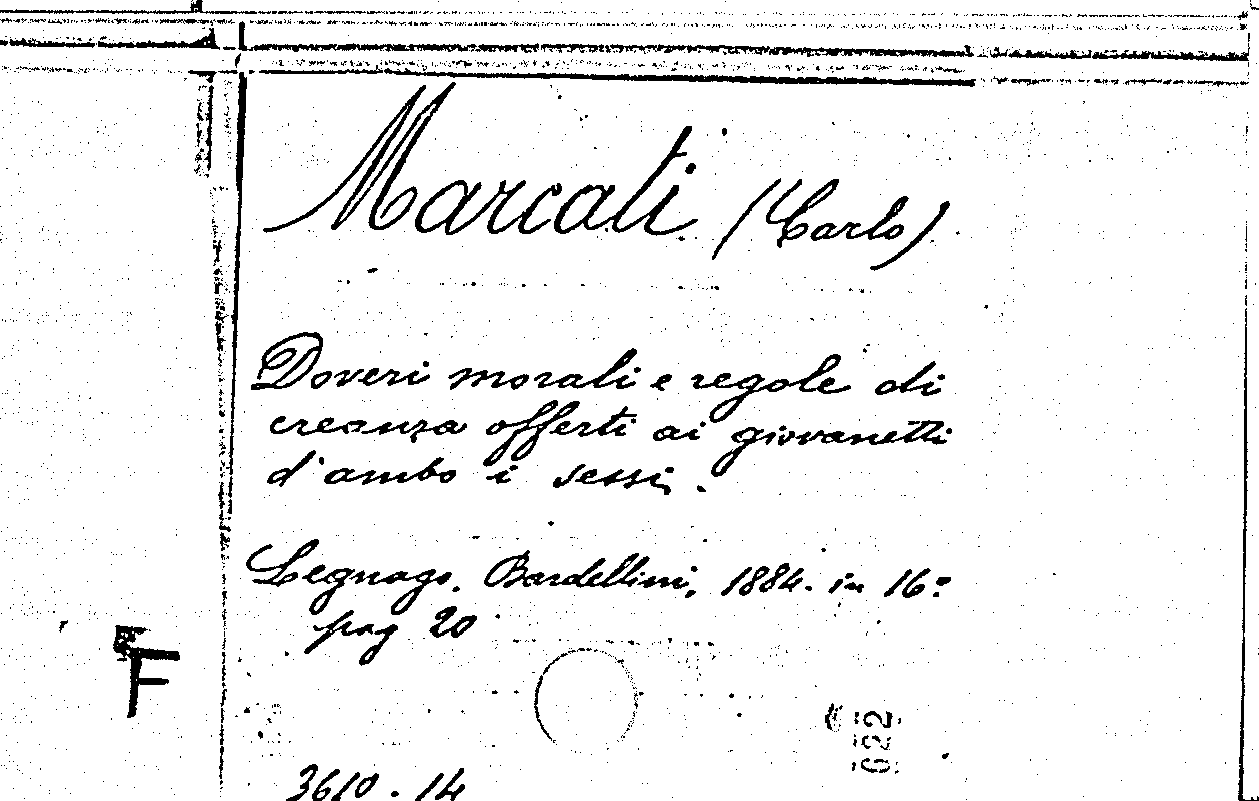 Marcati (Carlo)
Doveri morali e regole di
creanza offerti ai giovanetti
d'ambo i sessi.
Legnago. Bardellini, 1884. in 16º
pag 20
F
622
3610 . 14